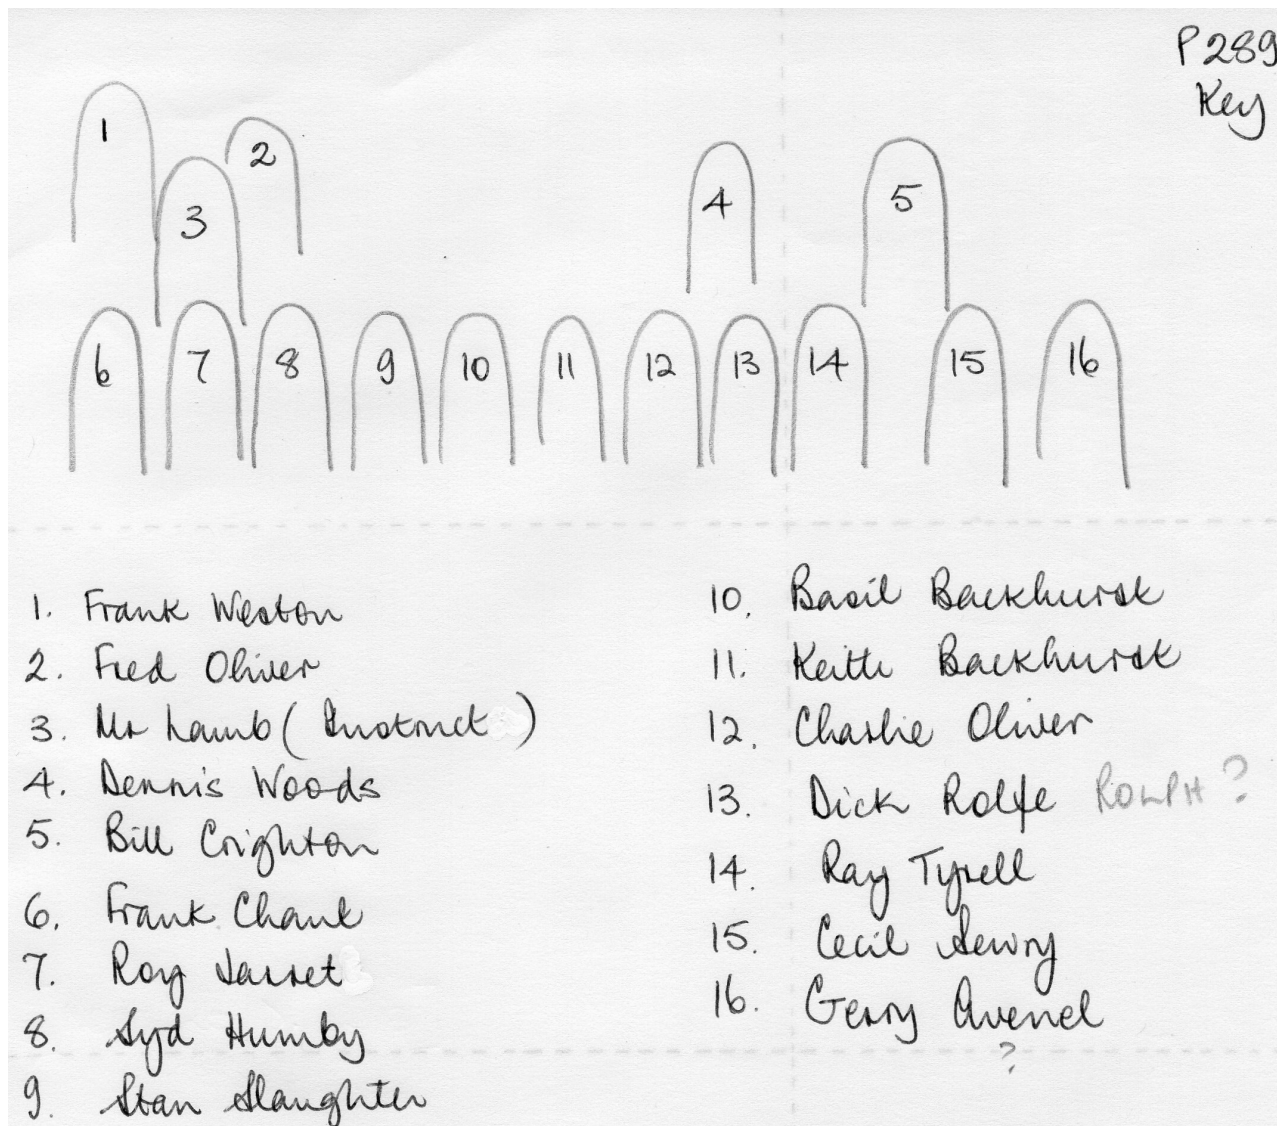 P289
Key
1
2
3
4
5
6
7
8
9
10
11
12
13
14
15
16
1. Frank Weston
2. Fred Oliver
3. Mr Lamb (Instruct )
4. Dennis Woods
5. Bill Crighton
6. Frank Chant
7. Roy Jarret
8. Syd Humby
9. Stan Slaughter
10. Basil Backhurst
11. Keith Backhurst
12. Charlie Oliver
13. Dick Rolfe ROLPH ?
14. Ray Tyrell
15. Cecil Sewry
16. Gerry Avenel
?